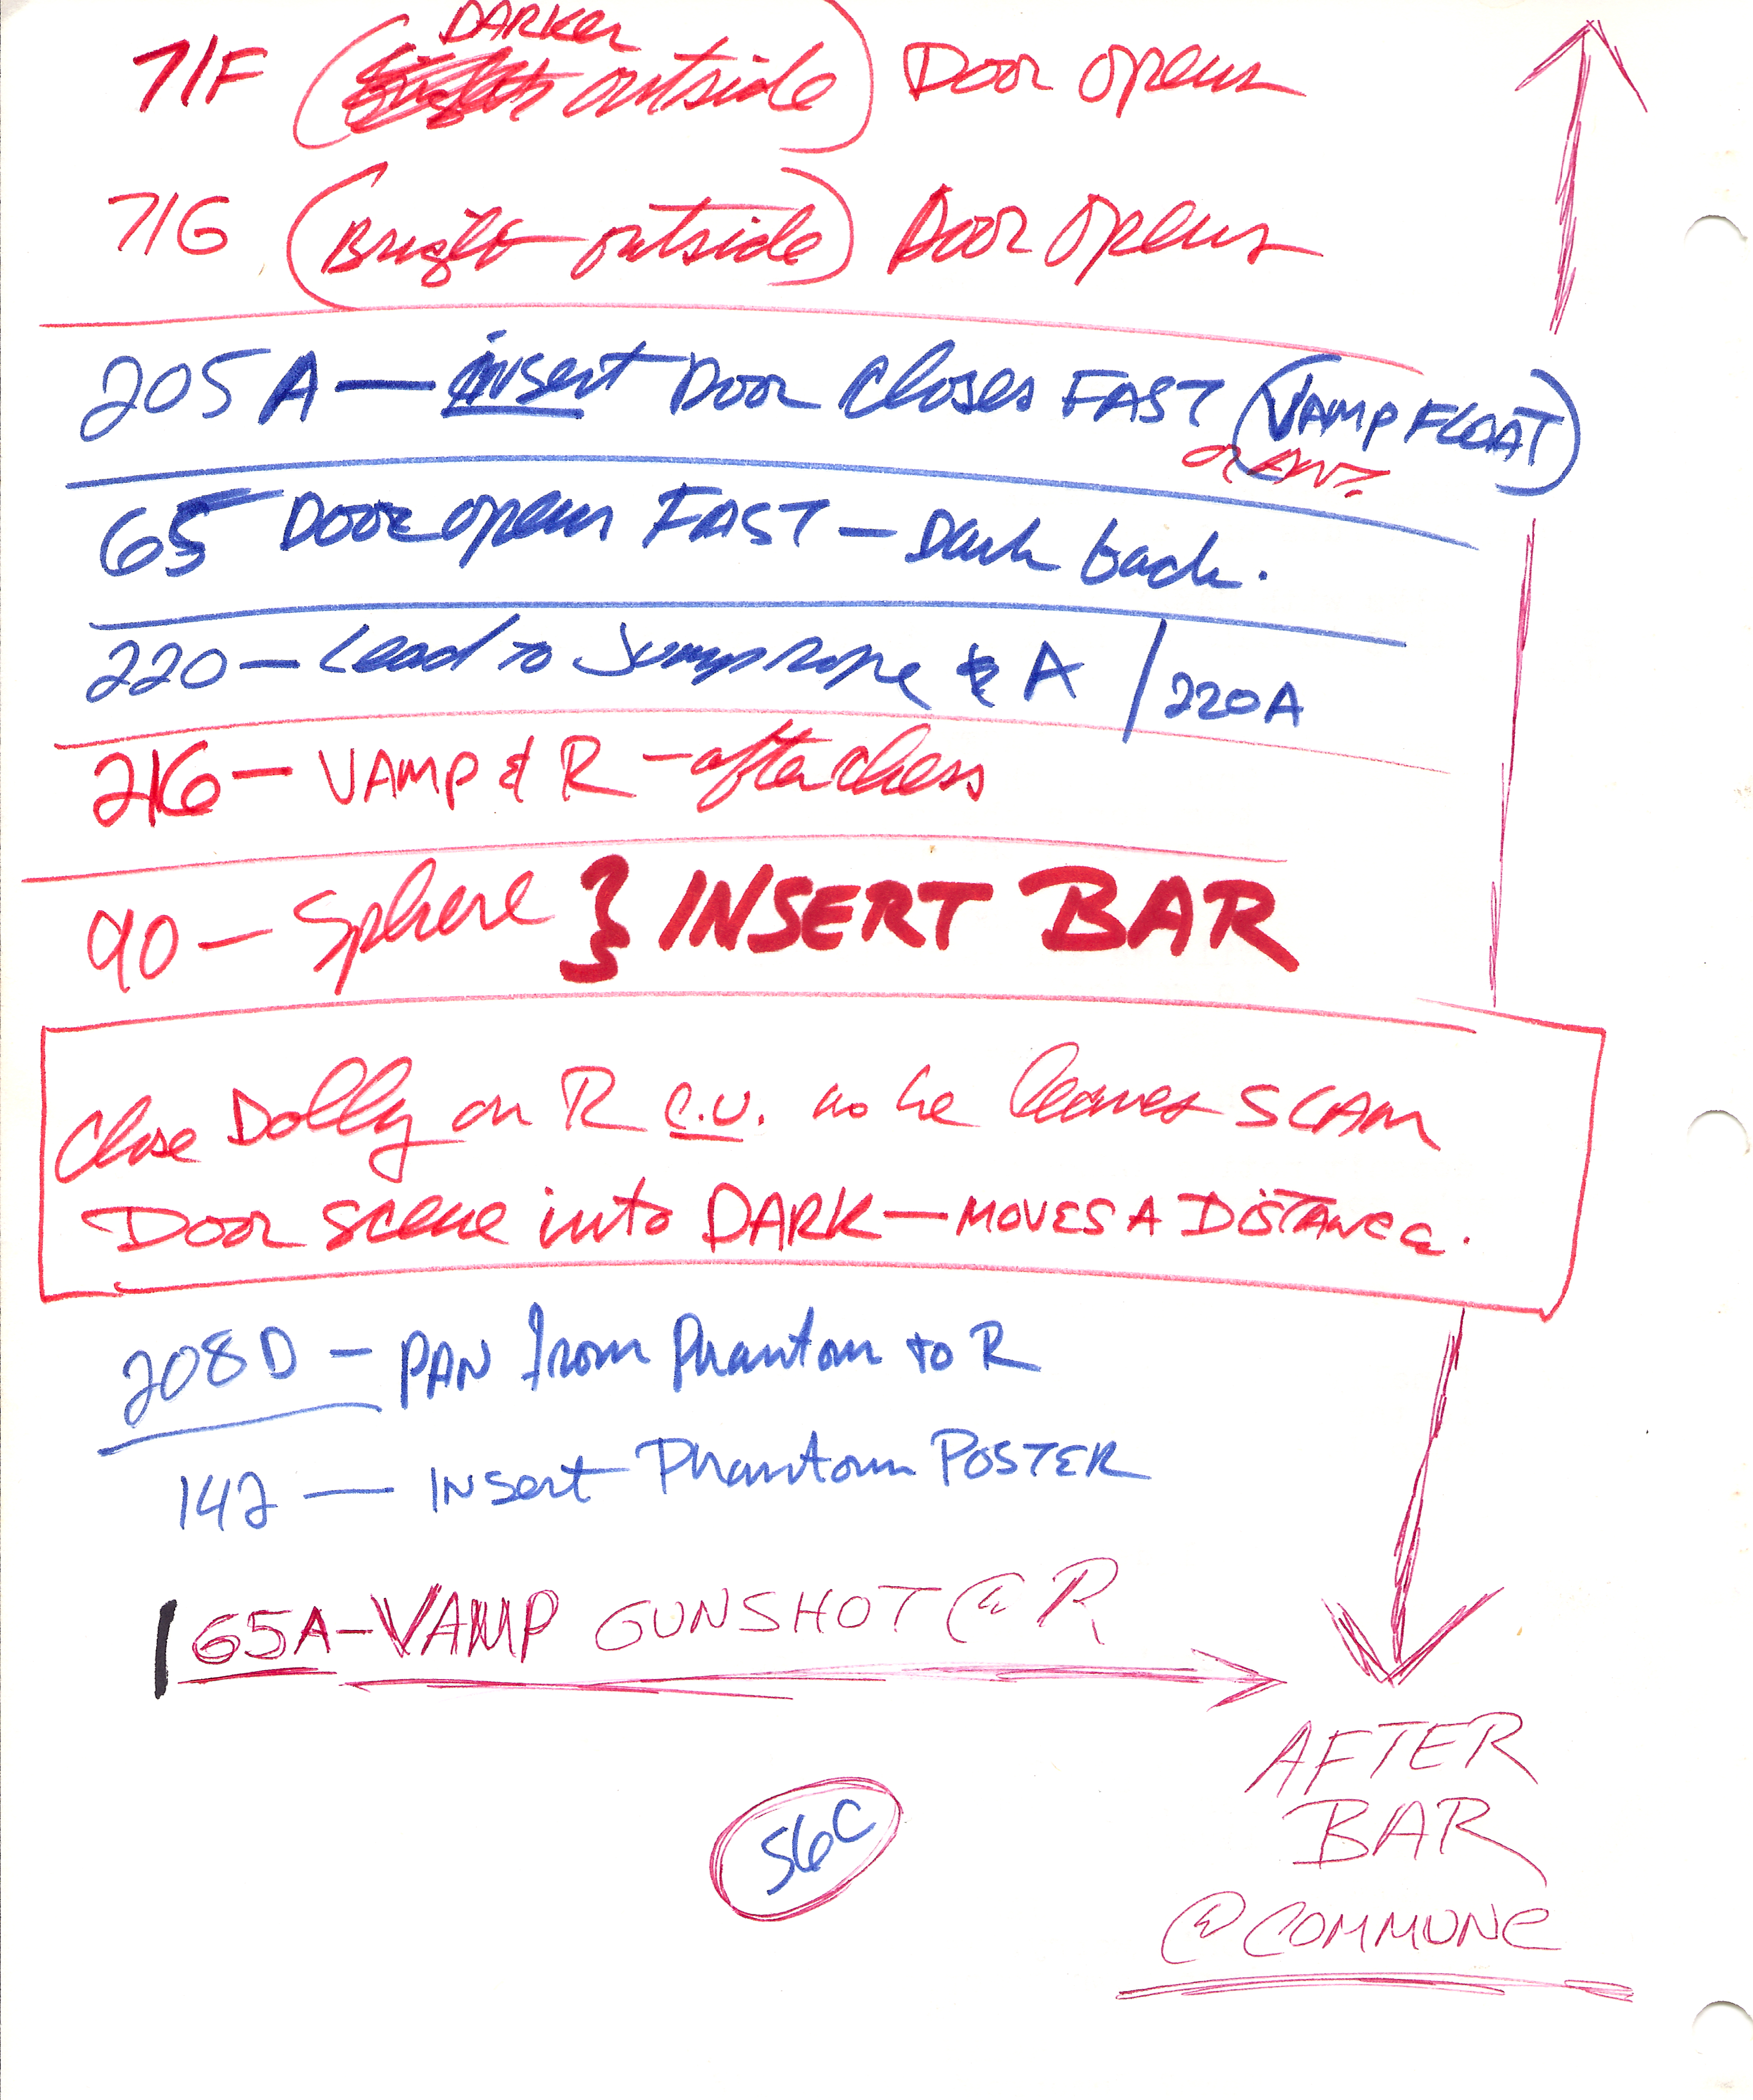 DARKER
71F (outside) Door opens
71G (Bright outside) Door opens
205A — insert Door closes FAST (VAMP FLOAT)
65 Door opens FAST — Dark back.
220 — Lead to Jumprope & A / 220A
216 — VAMP & R — after chess
90 — Sphere } INSERT BAR
Close Dolly on R C.U. as he leaves SCAM
Door scene into DARK — MOVES A DISTANCE.
208D — PAN from Phantom to R
142 — INSert Phantom POSTER
65A — VAMP GUNSHOT @ R
AFTER
BAR
@ COMMUNE
56C